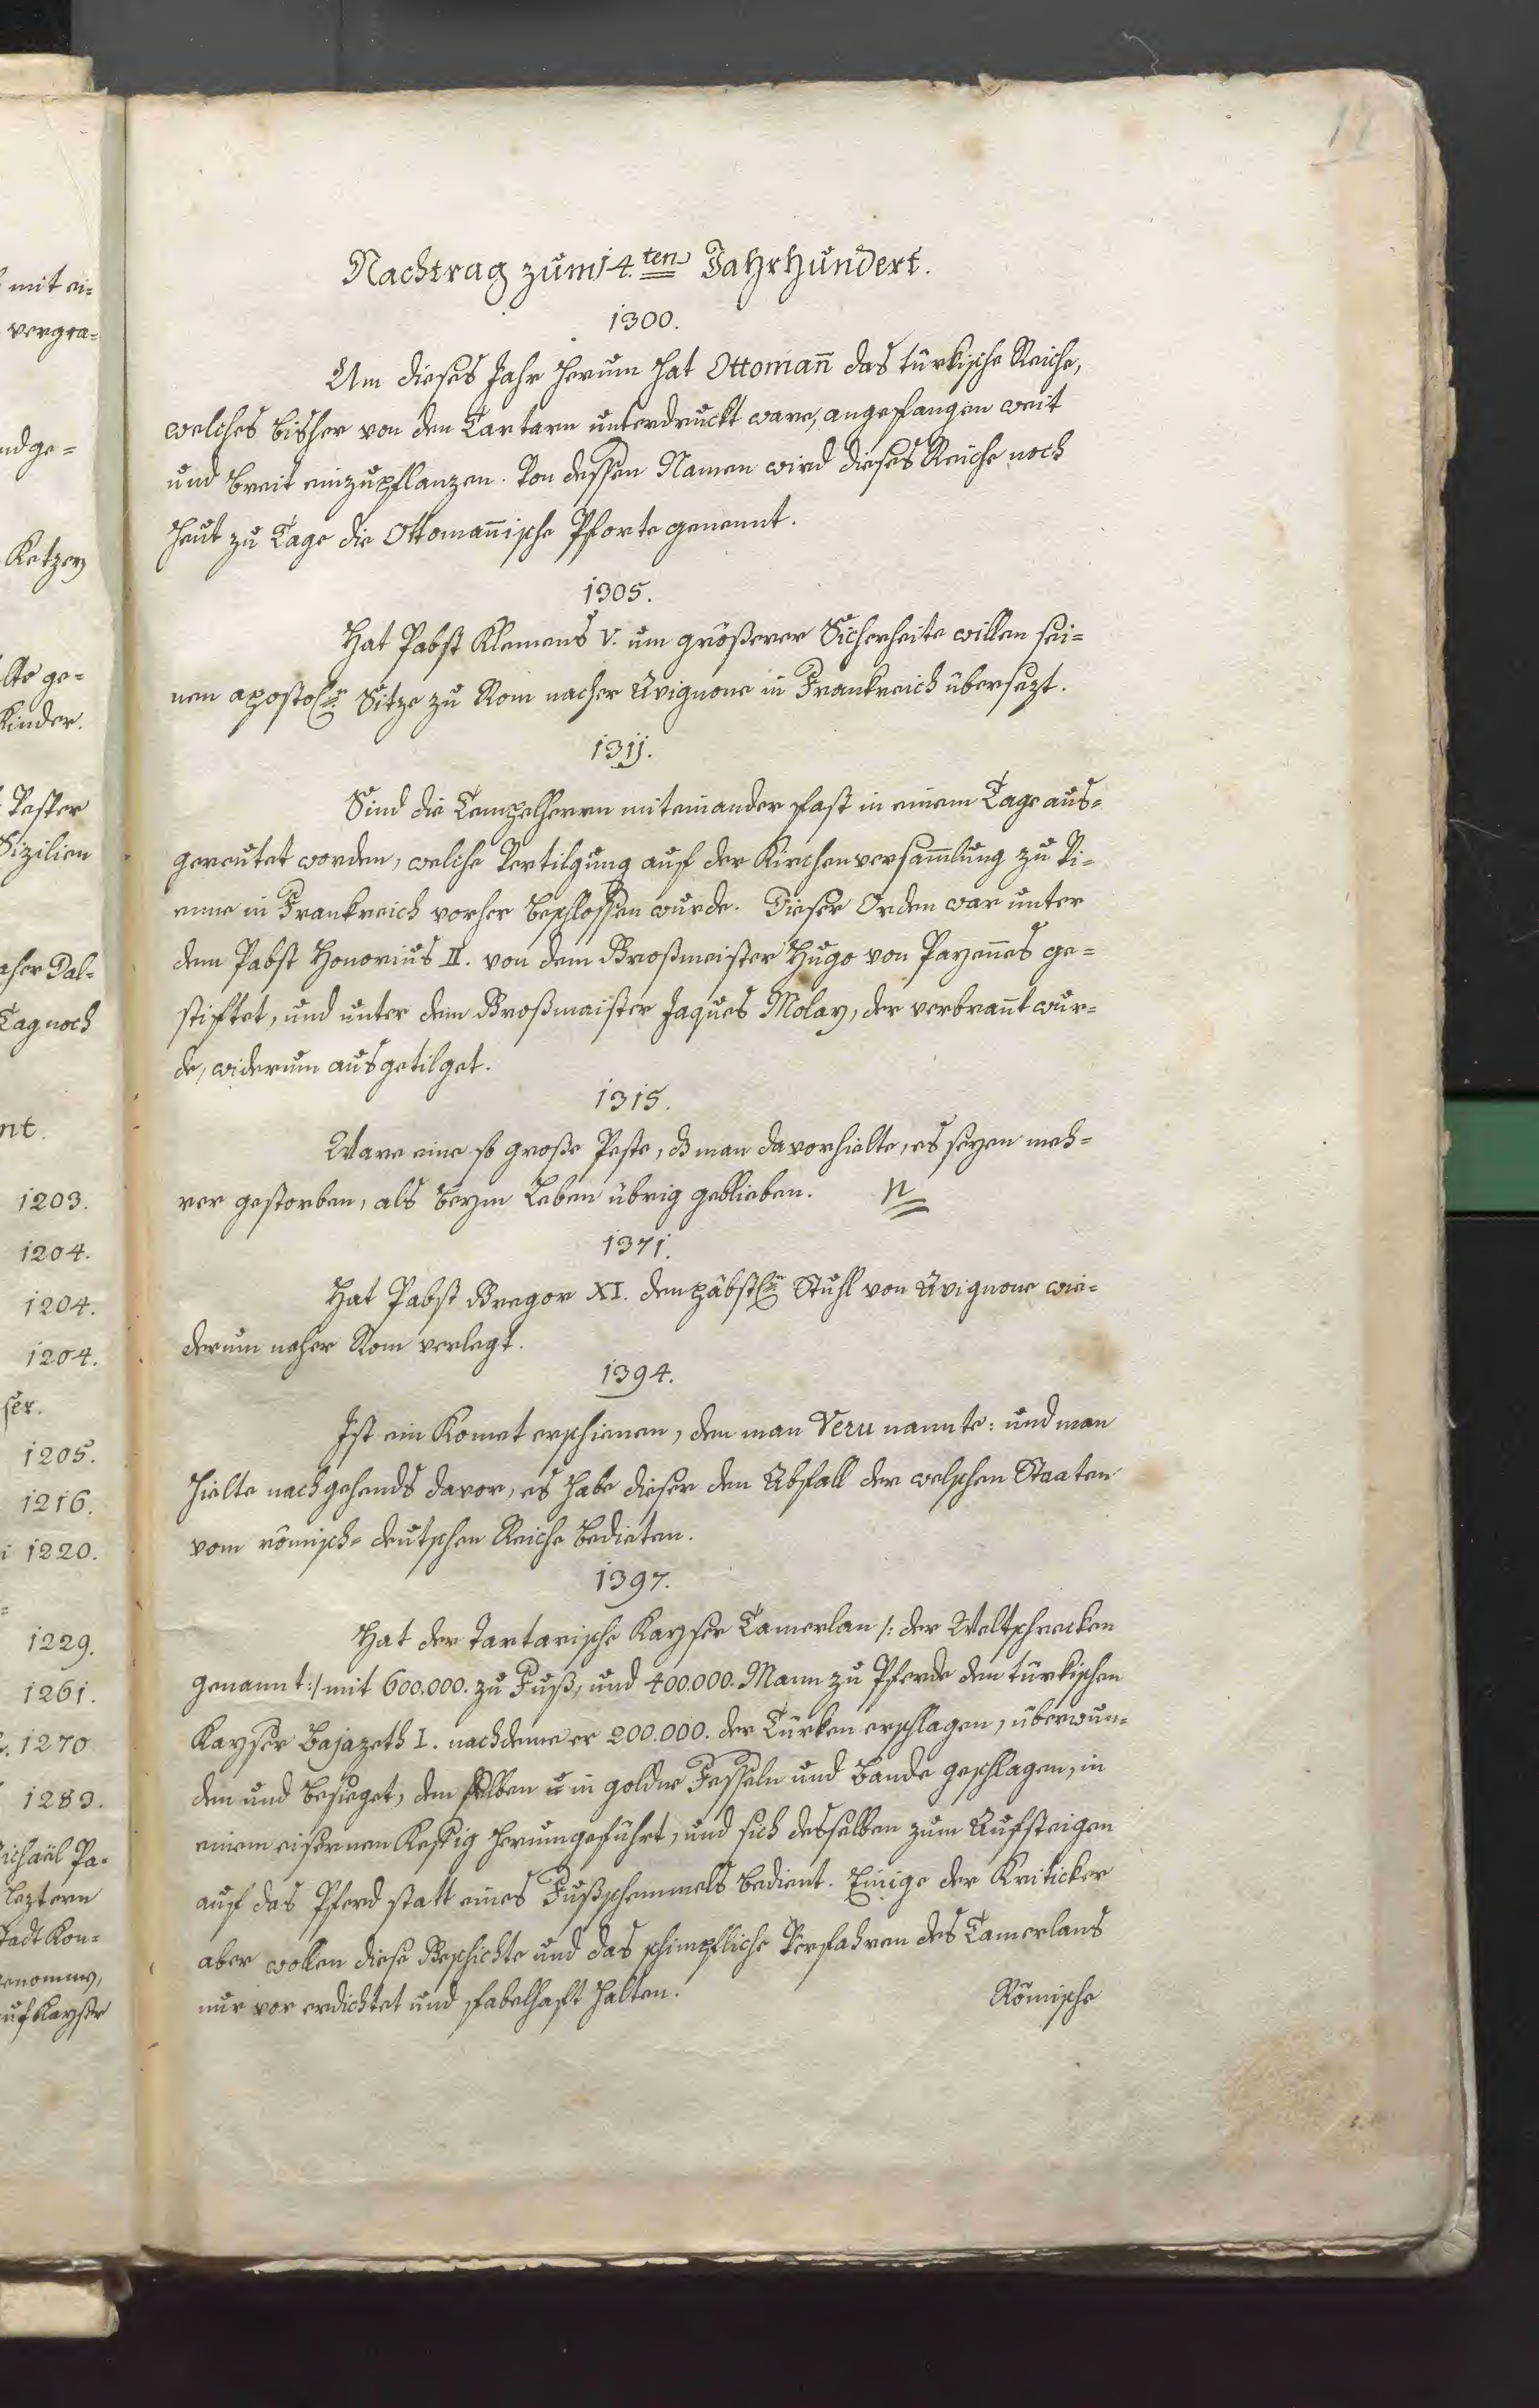 11
Nachtrag zum 14.ten Jahrhundert.
1300.
Um dieses Jahr herum hat Ottomañ das türkische Reiche,
welches bisher von den Tartarn unterdruckt ware, angefangen weit
und breit einzupflanzen. Von dessen Namen wird dieses Reiche noch
heut zu Tage die Ottomañische Pforte genennt.
1305.
Hat Pabst Klemens V. um größerer Sicherheite willen sei=
nen apostol. Sitze zu Rom nacher Avignone in Frankreich übersezt.
1311.
Sind die Tempelherrn miteinander fast in einem Tage aus=
gereutet worden, welche Vertilgung auf der Kirchenversam̄lung zu Vi=
enne in Frankreich vorher beschlossen wurde. Dieser Orden war unter
dem Pabst Honorius II. von dem Großmeister Hugo von Payenes ge=
stiftet, und unter dem Großmaister Jaques Molay, der verbrañt wur=
de, widerum ausgetilget.
1315.
Ware eine so große Peste, dß man davorhielte, es seyen meh=
rer gestorben, als beym Leben übrig geblieben. N
1371.
Hat Pabst Gregor XI. den päbstl. Stuhl von Avignone wie=
derum naher Rom verlegt.
1394.
Ist ein Komet erschienen, den man Veru nannte: und man
hielte nachgehends davor, es habe dieser den Abfall der welschen Staaten
vom römisch=deutschen Reiche bedieten.
1397.
Hat der Tartarische Kayser Tamerlan /: der Weltschrecken
genannt :/ mit 600.000. zu Fuß, und 400.000. Mann zu Pferde den türkischen
Kayser Bajazeth I. nachdeme er 200.000. der Türken erschlagen, überwun=
den und besieget, den selben in goldne Fesseln und Bande geschlagen, in
einem eisernen Kefig herumgeführt, und sich desselben zum Aufsteigen
auf das Pferd statt eines Fußschemmels bedient. Einige der Kriticker
aber wollen diese Geschichte und das schimpfliche Verfahren des Tamerlans
nur vor erdichtet und fabelhaft halten.
Römische
mit ei=
vergra=
ndge=
Ketzer
lte ge=
Kinder.
Vesper
Sizilien
Tag noch
nt.
1203.
1204.
1204.
1204.
ser.
1205.
1216.
1220.
1229.
1261.
1270
1283.
ichaël Pa=
leztern
tadt Kon=
enommen,
uf Kayser